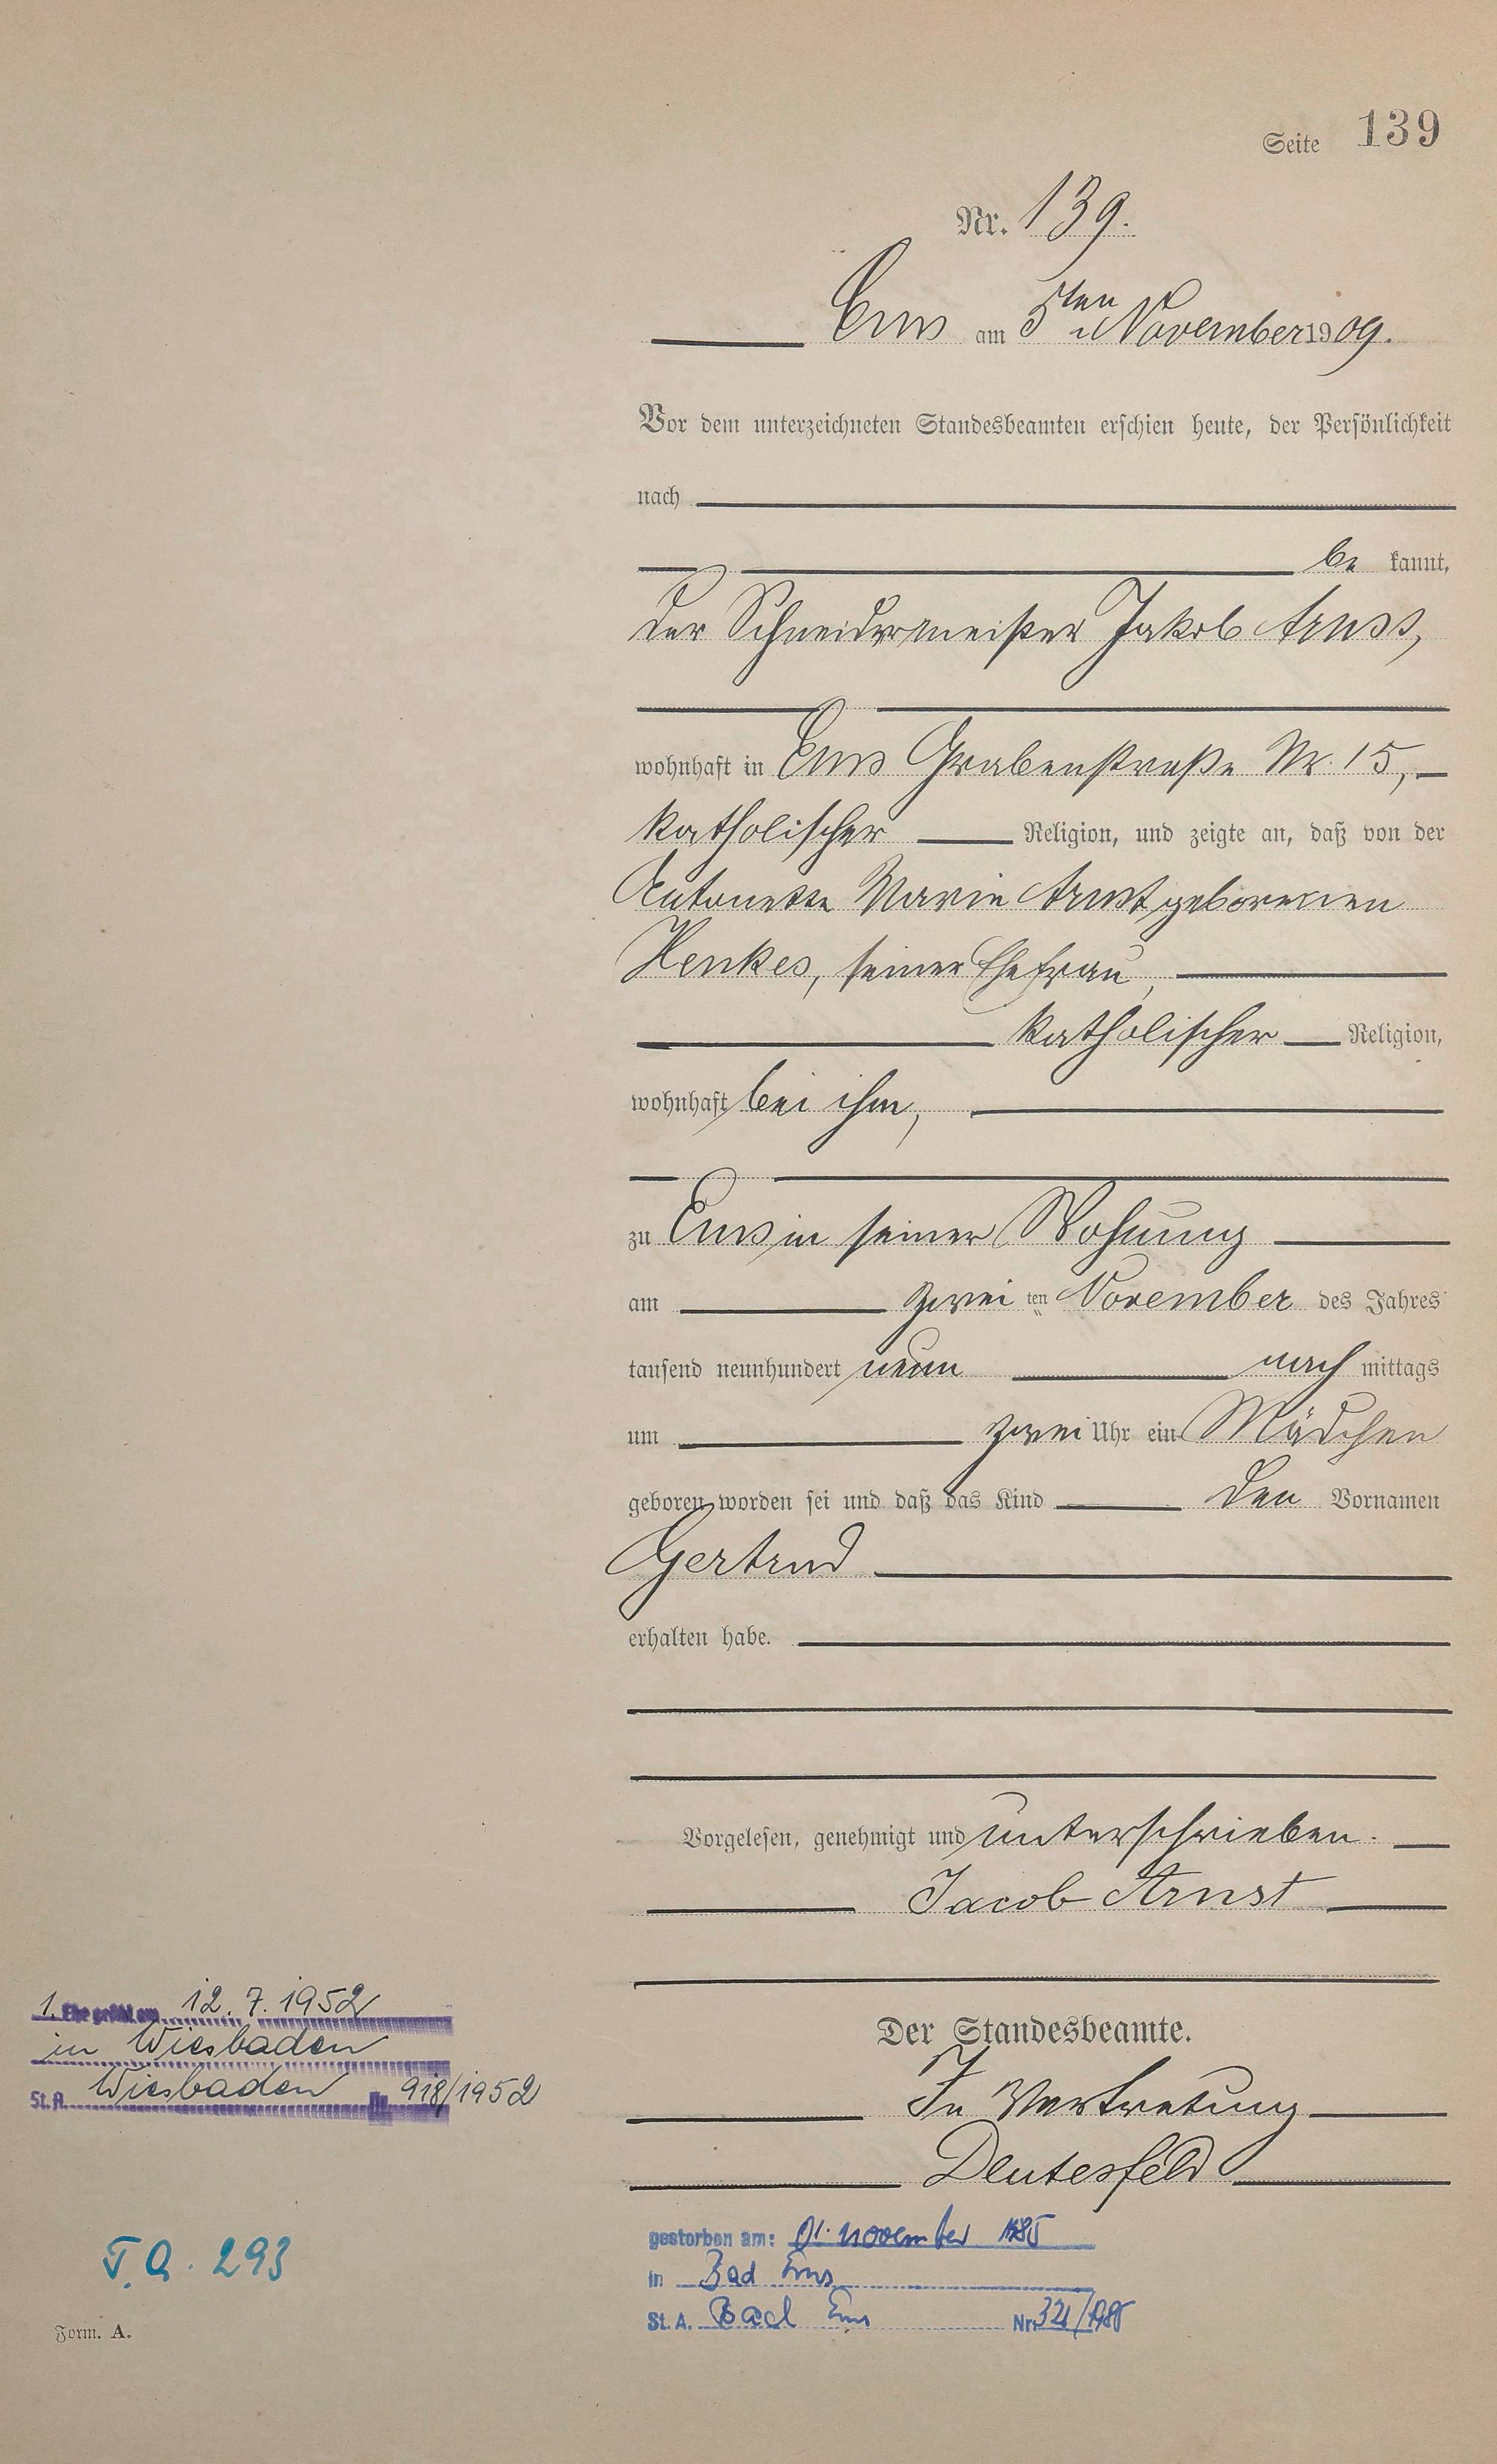 Seite 139
Nr. 139.
Ems am 5ten November 1909.
Vor dem unterzeichneten Standesbeamten erschien heute, der Persönlichkeit
nach
be kannt,
der Schneidermeister Jakob Arnst,
wohnhaft in Ems Grabenstraße Nr. 15,
katholischer Religion, und zeigte an, daß von der
Antonette Marie Arnst geborenen
Henkes, seiner Ehefrau,
katholischer Religion,
wohnhaft bei ihm,
zu Ems in seiner Wohnung
am zwei ten November des Jahres
tausend neunhundert neun nach mittags
um zwei Uhr ein Mädchen
geboren worden sei und daß das Kind den Vornamen
Gertrud
erhalten habe.
Vorgelesen, genehmigt und unterschrieben.
Jacob Arnst
Der Standesbeamte.
In Vertretung
Deutesfeld
1. Ehe geschl. am 12. 7. 1952
in Wiesbaden
St. A. Wiesbaden Nr. 918/1952
gestorben am: 01. November 1985
in Bad Ems
St. A. Bad Ems Nr. 321/1985
T. A. 293
Form. A.